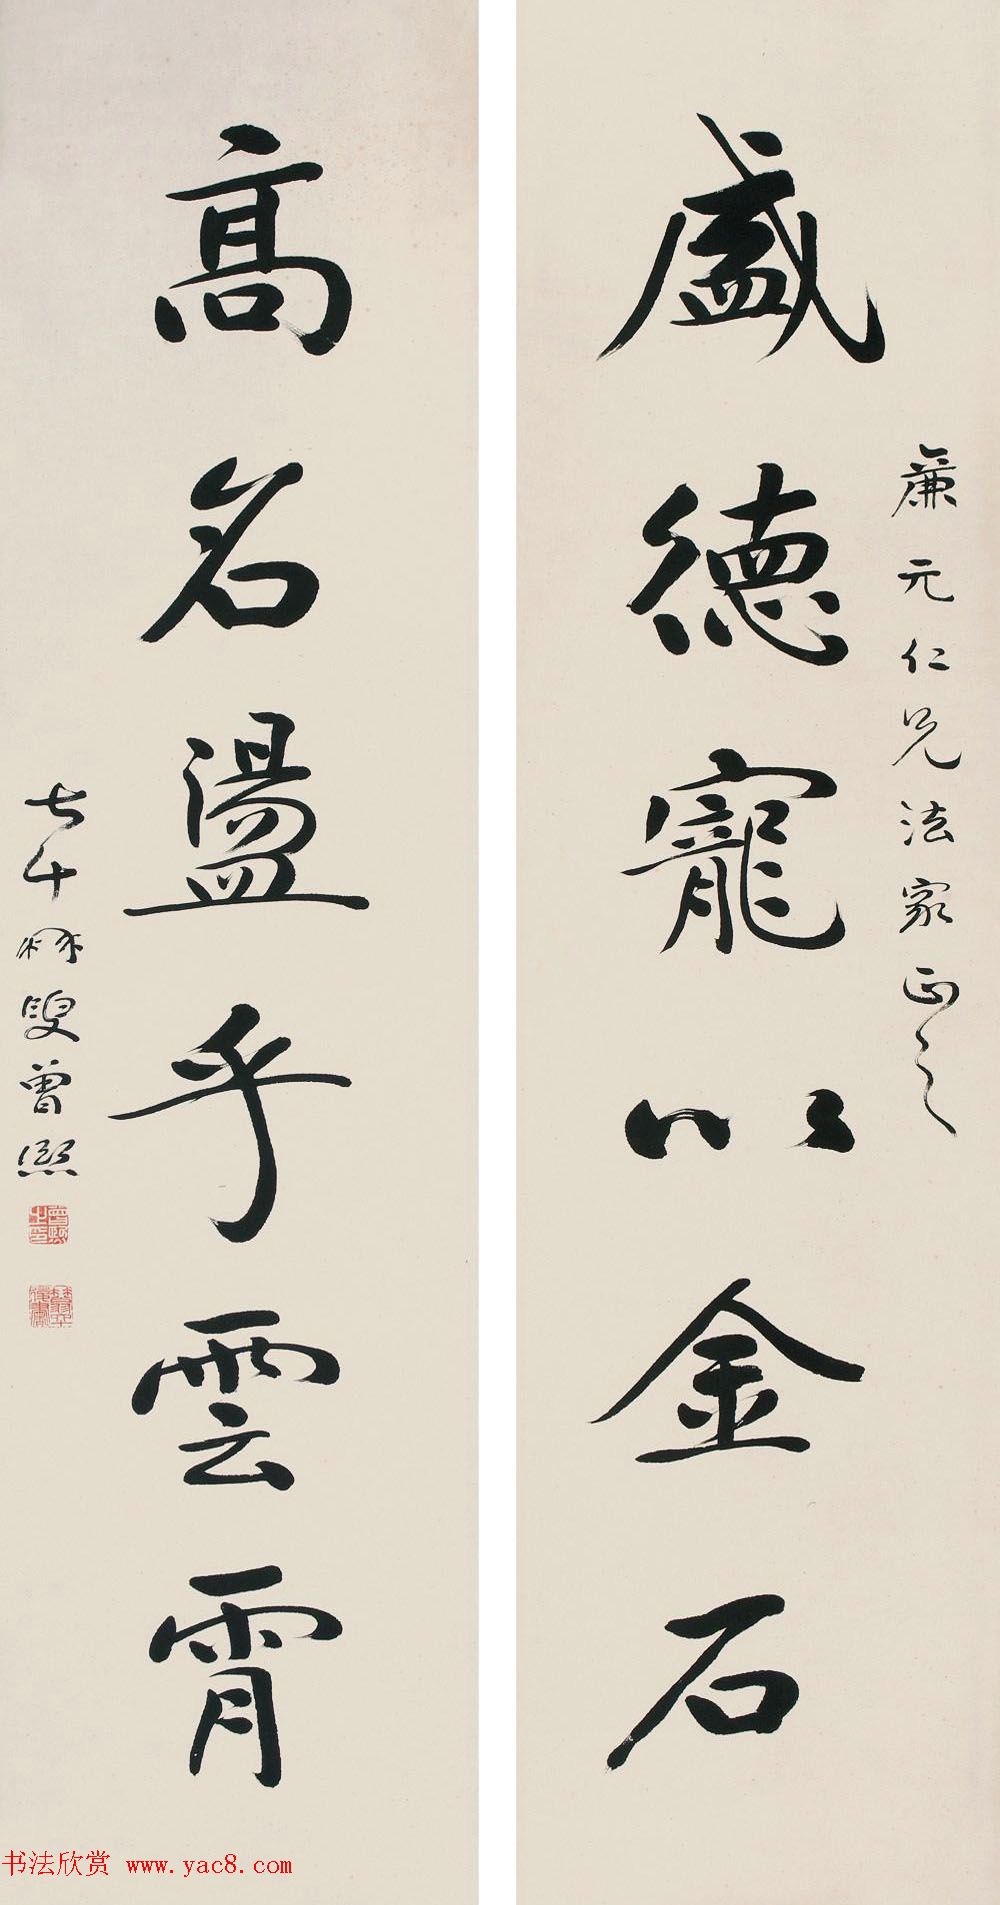 廉元仁兄法家正之
盛德寵以金石
高名盪乎雲霄
七十叟曾熙
曾熙之印
书法欣赏 www.yac8.com